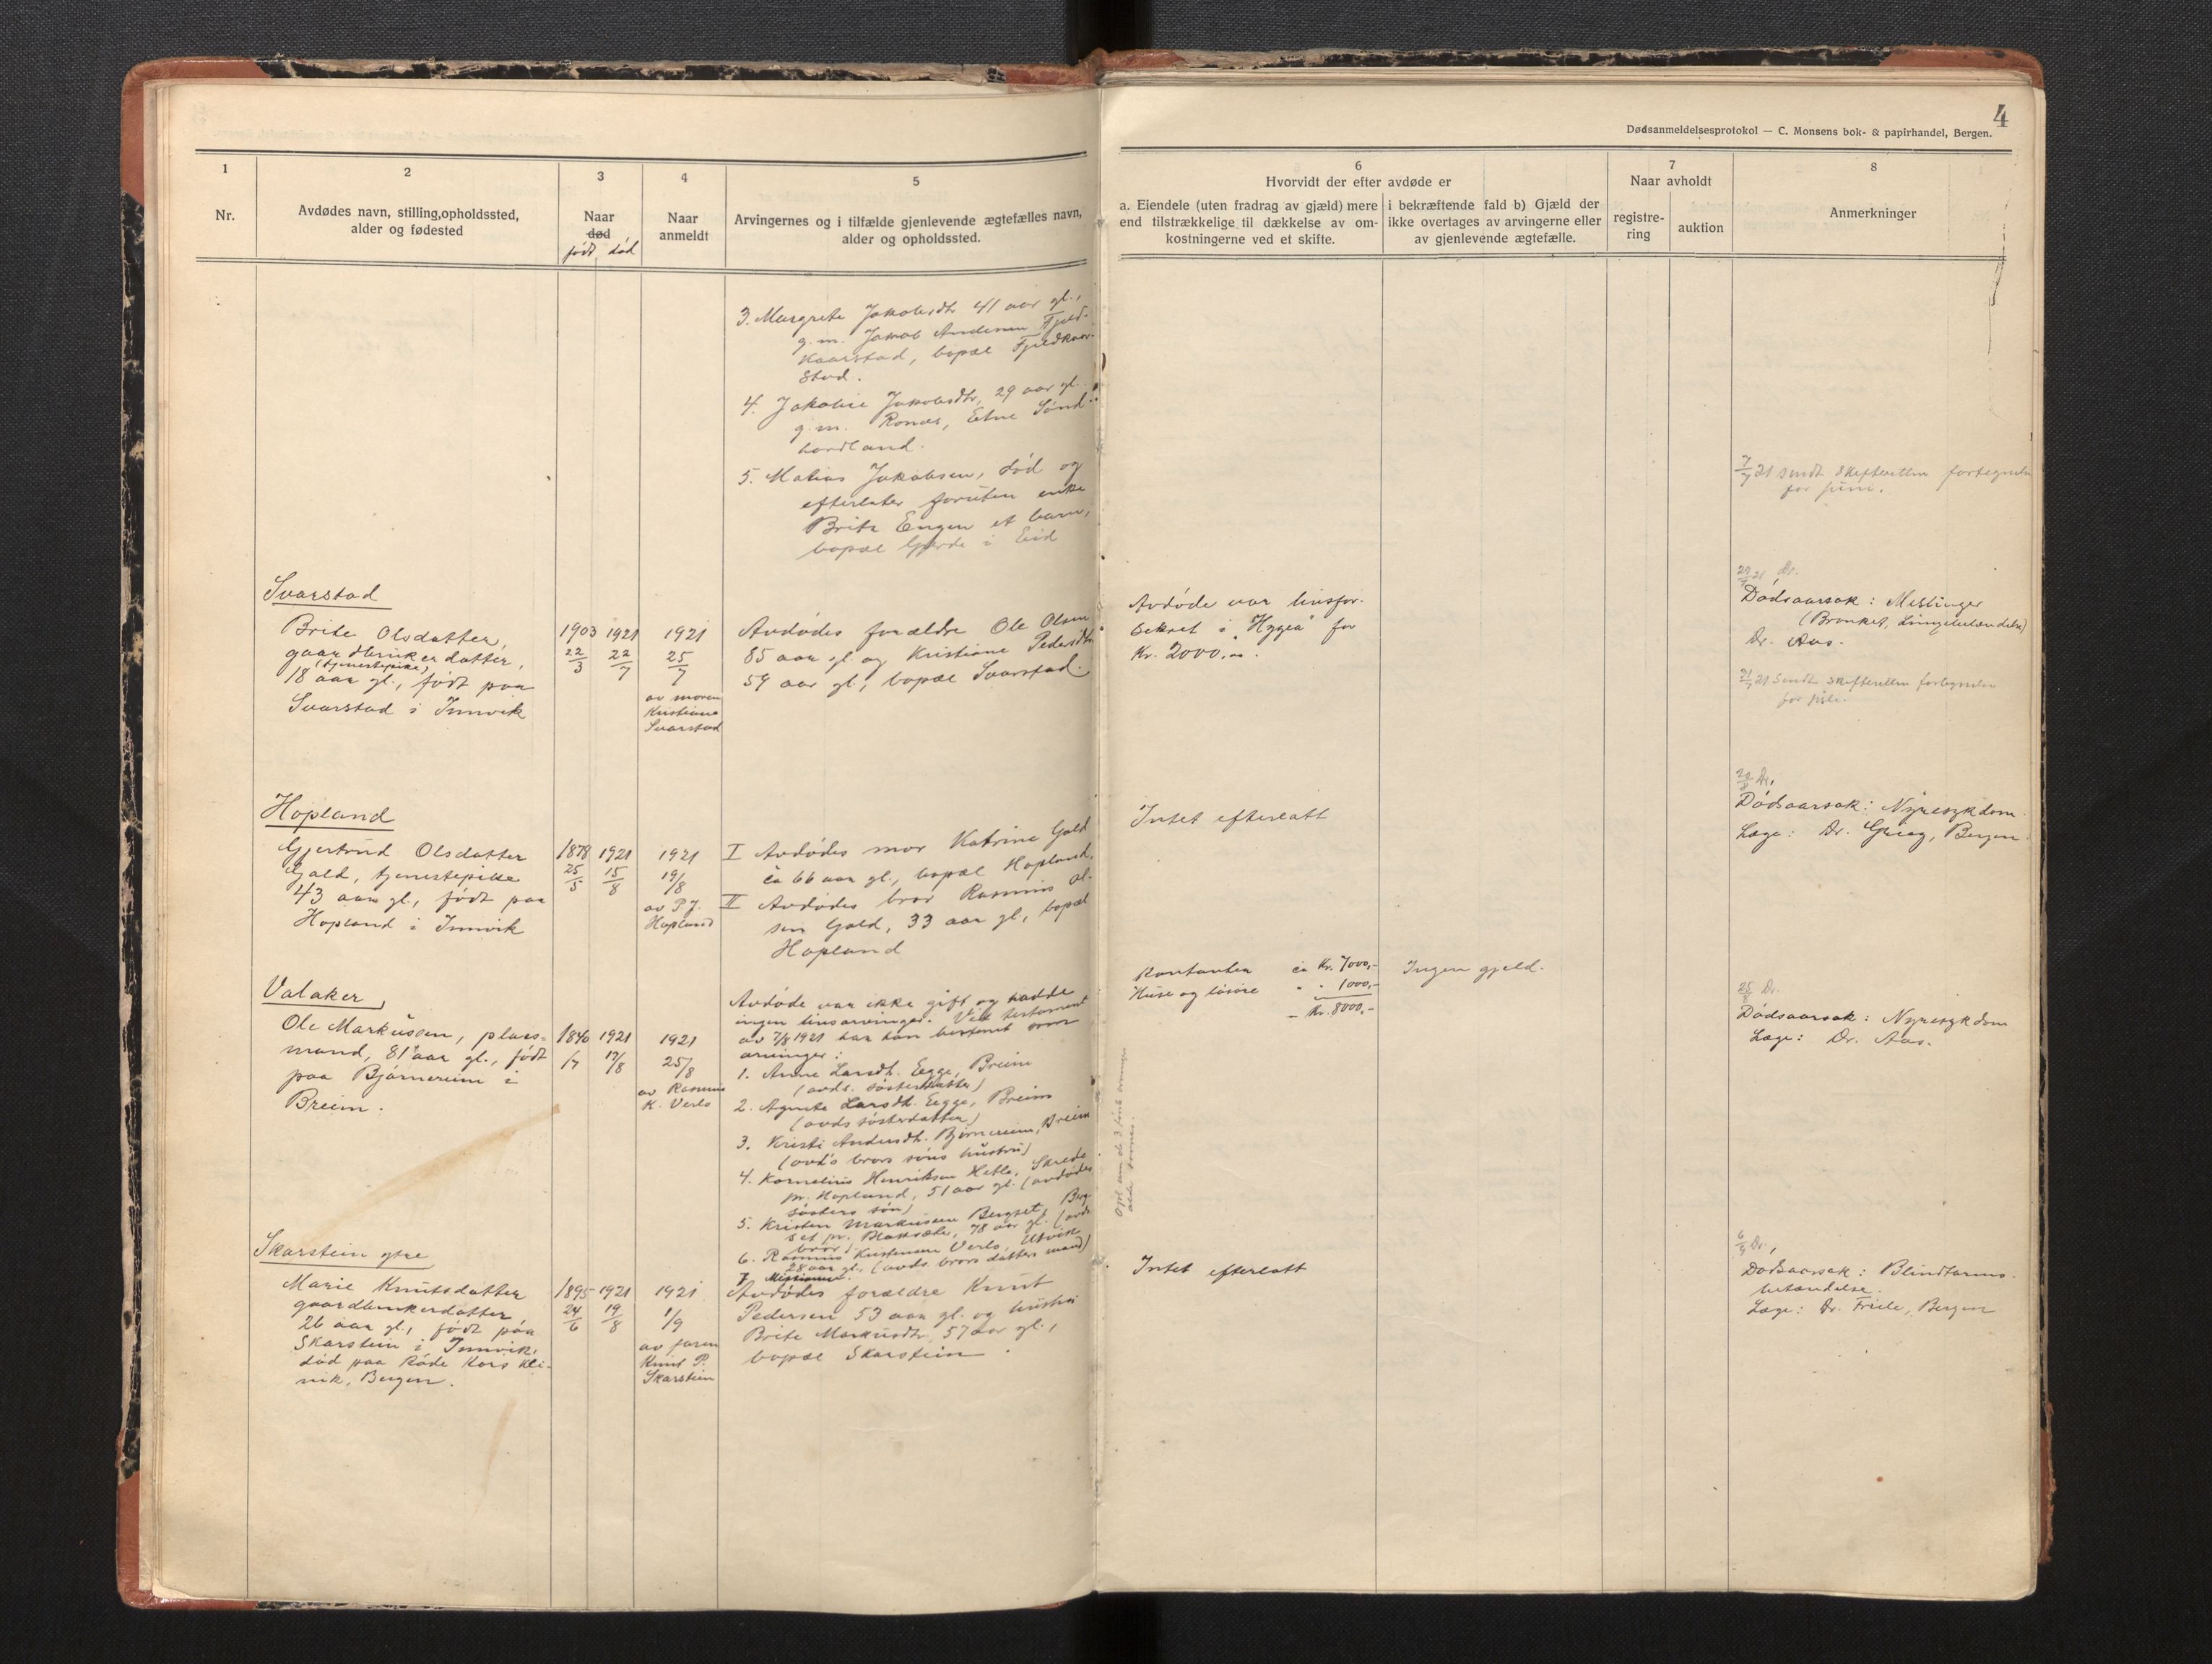 4
Dødsanmeldelsesprotokol — C. Monsens bok- & papirhandel, Bergen.
1
2
3
4
5
6
7
8
Nr.
Avdødes navn, stilling, opholdssted,
alder og fødested
Naar
død
født død
Naar
anmeldt
Arvingernes og i tilfælde gjenlevende ægtefælles navn,
alder og opholdssted.
Hvorvidt der efter avdøde er
a. Eiendele (uten fradrag av gjæld) mere
end tilstrækkelige til dækkelse av om-
kostningerne ved et skifte.
i bekræftende fald b) Gjæld der
ikke overtages av arvingerne eller
av gjenlevende ægtefælle.
Naar avholdt
registre-
ring
auktion
Anmerkninger
3. Margrete Jakobsdtr 41 aar gl.,
g.m. Jakob Andersen Fjeld-
kaarstad, bopæl Fjeldkaar-
stad.
4. Jakobine Jakobsdtr, 29 aar gl.
g.m. Etne Sønd-
hordland.
5. Matias Jakobsen, død og
efterlater foruten enke
Brite Engen et barn,
bopæl Gjerde i Eid
7/7 21 sendt skifteretten fortegnelse
for juni.
Svarstad
Brite Olsdatter,
gaardbruker datter,
(tjenestepike)
18 aar gl., født paa
Svarstad i Innvik
1903 1921
22/3 22/7
1921
25/7
av moren
Kristiane
Svarstad
Avdødes forældre Ole Olsen
85 aar gl. og Kristiane Pedersdtr
59 aar gl., bopæl Svarstad.
Avdøde var livsfor-
sikret i "Hygea" for
Kr. 2000,00.
27/7 21 Dr.
Dødsaarsak: Meslinger
(Bronket, Lungebetændelse)
Dr. Aas.
31/7 21 Sendt skifteretten fortegnelse
for juli.
Hopland
Gjertrud Olsdatter
Gald, tjenestepike
43 aar gl., født paa
Hopland i Innvik
1878 1921
25/5 15/8
1921
19/8
av P.J.
Hopland
I Avdødes mor Katrine Gald
ca 66 aar gl., bopæl Hopland.
II Avdødes bror Rasmus Ol-
sen Gald, 33 aar gl., bopæl
Hopland
Intet efterlatt
22/8 Dr.
Dødsaarsak: Nyresykdom.
Læge: Dr. Grieg, Bergen.
Valaker,
Ole Markussen, plass-
mand, 81 aar gl., født
paa Bjørnereim i
Breim.
1840 1921
1/7 17/8
1921
25/8
av Rasmus
K. Verlo
Avdøde var ikke gift og hadde
ingen livsarvinger. Ved testament
av 7/8 1921 har han bestemt som
arvinger:
1. Anne Larsdtr. Egge, Breim
(avds. søsterdatter)
2. Agnete Larsdtr. Egge, Breim
(avds søsterdatter)
3. Kristi Andersdtr. Bjørnereim, Breim
(avd's brors søns hustru)
4. Kornelius Henriksen Hetle, Skrede
pr. Hopland, 51 aar gl. (avdødes
søsters søn)
5. Kristen Markussen Bergset, Berg-
set pr. 78 aar gl. (avds
bror)
6. Rasmus Kristensen Verlo, Utvik
28 aar gl. (avds. brors datters mand)
7.
Kontanter ca Kr. 7000,-
Huse og løsøre " " 1000,-
Kr. 8000,-
Ingen gjeld.
25/8 Dr.
Dødsaarsak: Nyresykdom
Læge: Dr. Aas.
Skarstein ytre
Marie Knutsdatter
gaardbrukerdatter
26 aar gl., født paa
Skarstein i Innvik,
død paa Røde Kors kli-
nik, Bergen.
1895 1921
24/6 19/8
1921
1/9
av faren
Knut P.
Skarstein
Avdødes forældre Knut
Pedersen 53 aar gl. og hustru
Brite Markusdtr 57 aar gl.,
bopæl Skarstein.
Intet efterlatt
6/9 Dr.,
Dødsaarsak: Blindtarms-
betændelse.
Læge: Dr. Friele, Bergen